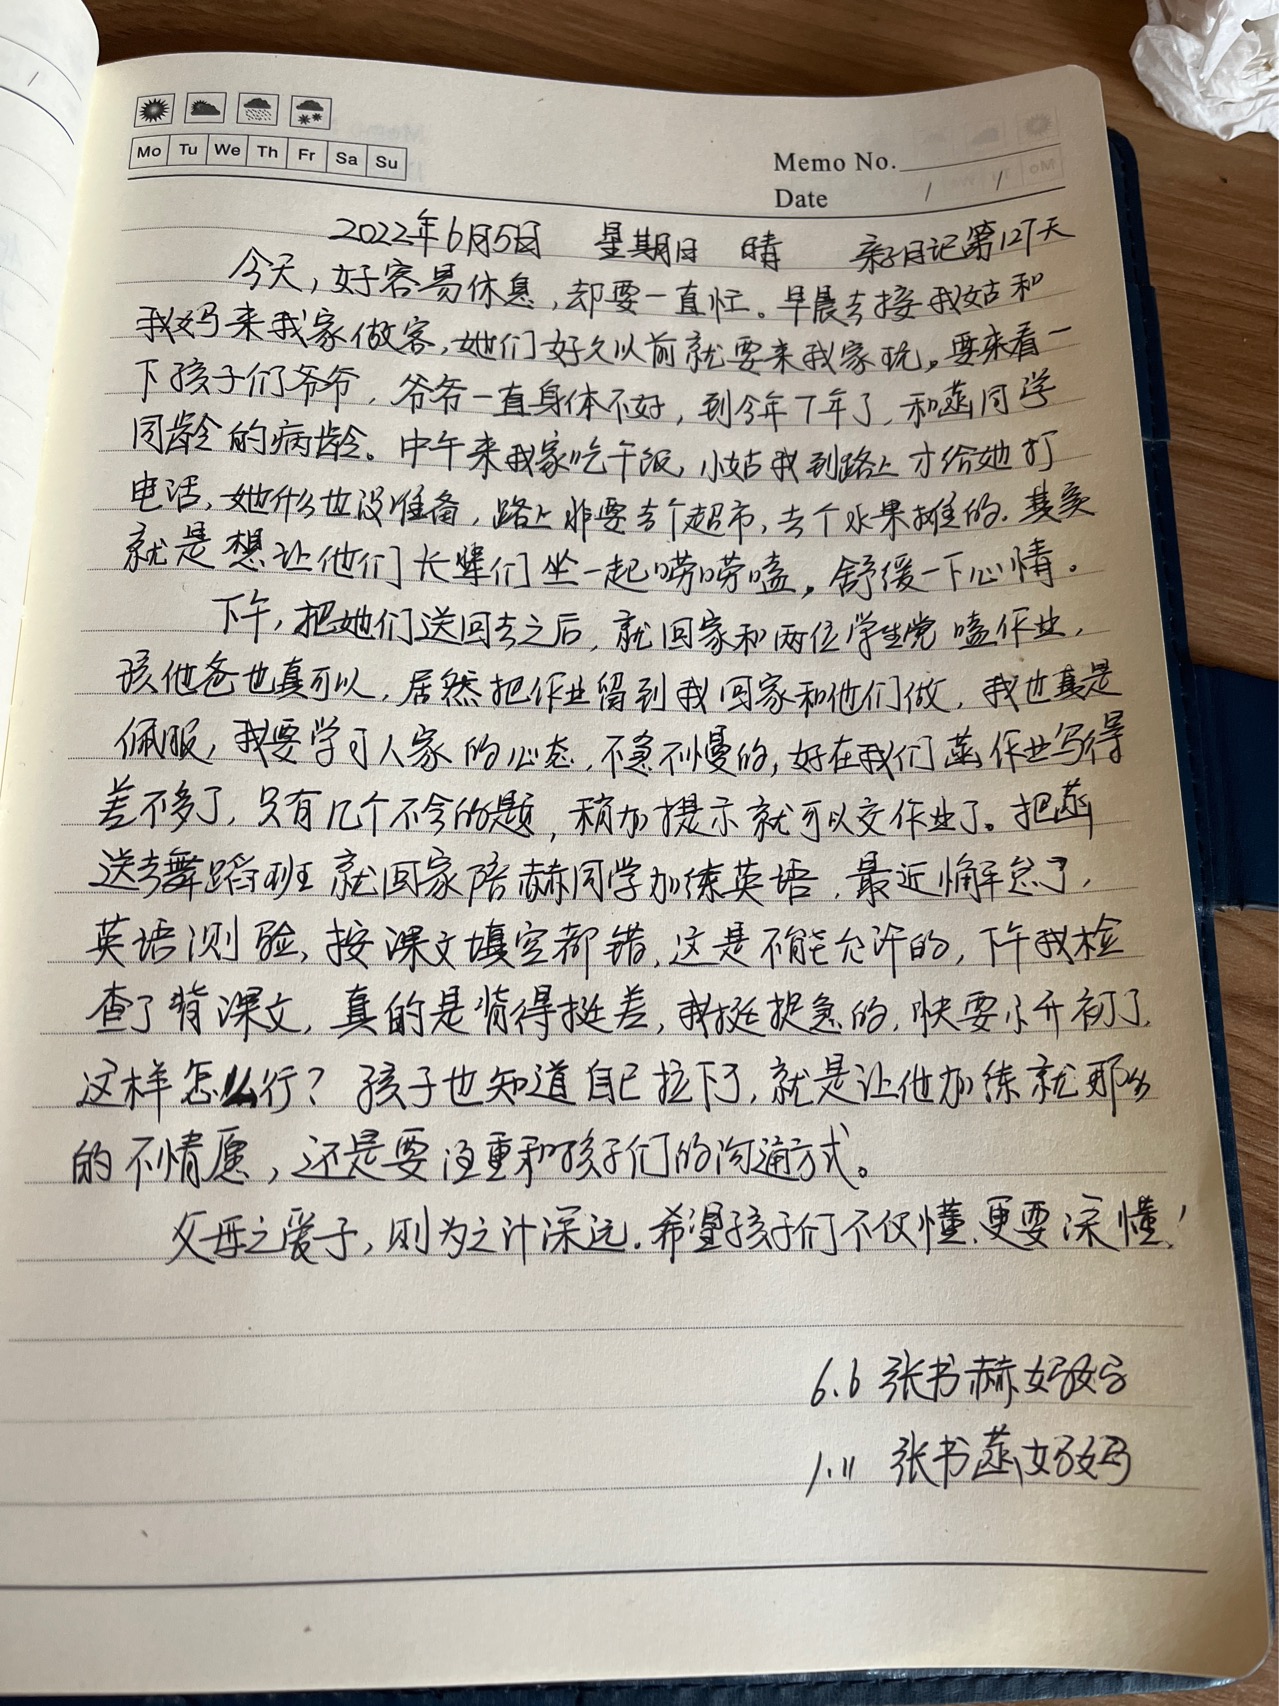 Mo Tu We Th Fr Sa Su
Memo No.
Date / /
2022年6月5日 星期日 晴 亲子日记第127天
今天,好容易休息,却要一直忙。早晨去接我姑和
我妈来我家做客,她们好久以前就要来我家玩。要来看一
下孩子们爷爷,爷爷一直身体不好,到今年7年了,和菡同学
同龄的病龄。中午来我家吃午饭,小姑我到路上才给她打
电话,她什么也没准备,路上非要去个超市,去个水果摊的.其实
就是想让他们长辈们坐一起唠唠嗑,舒缓一下心情。
下午,把她们送回去之后,就回家和两位学生党嗑作业,
孩他爸也真可以,居然把作业留到我回家和他们做,我也真是
佩服,我要学习人家的心态,不急不慢的,好在我们菡作业写得
差不多了,只有几个不会的题,稍加提示就可以交作业了。把菡
送去舞蹈班就回家陪赫同学加练英语,最近懈怠了,
英语测验,按课文填空都错,这是不能允许的,下午我检
查了背课文,真的是背得挺差,我挺捉急的,快要小升初了,
这样怎么行?孩子也知道自己拉下了,就是让他加练就那么
的不情愿,还是要注重和孩子们的沟通方式。
父母之爱子,则为之计深远.希望孩子们不仅懂,更要深懂!
6.6 张书赫妈妈
1.11 张书菡妈妈